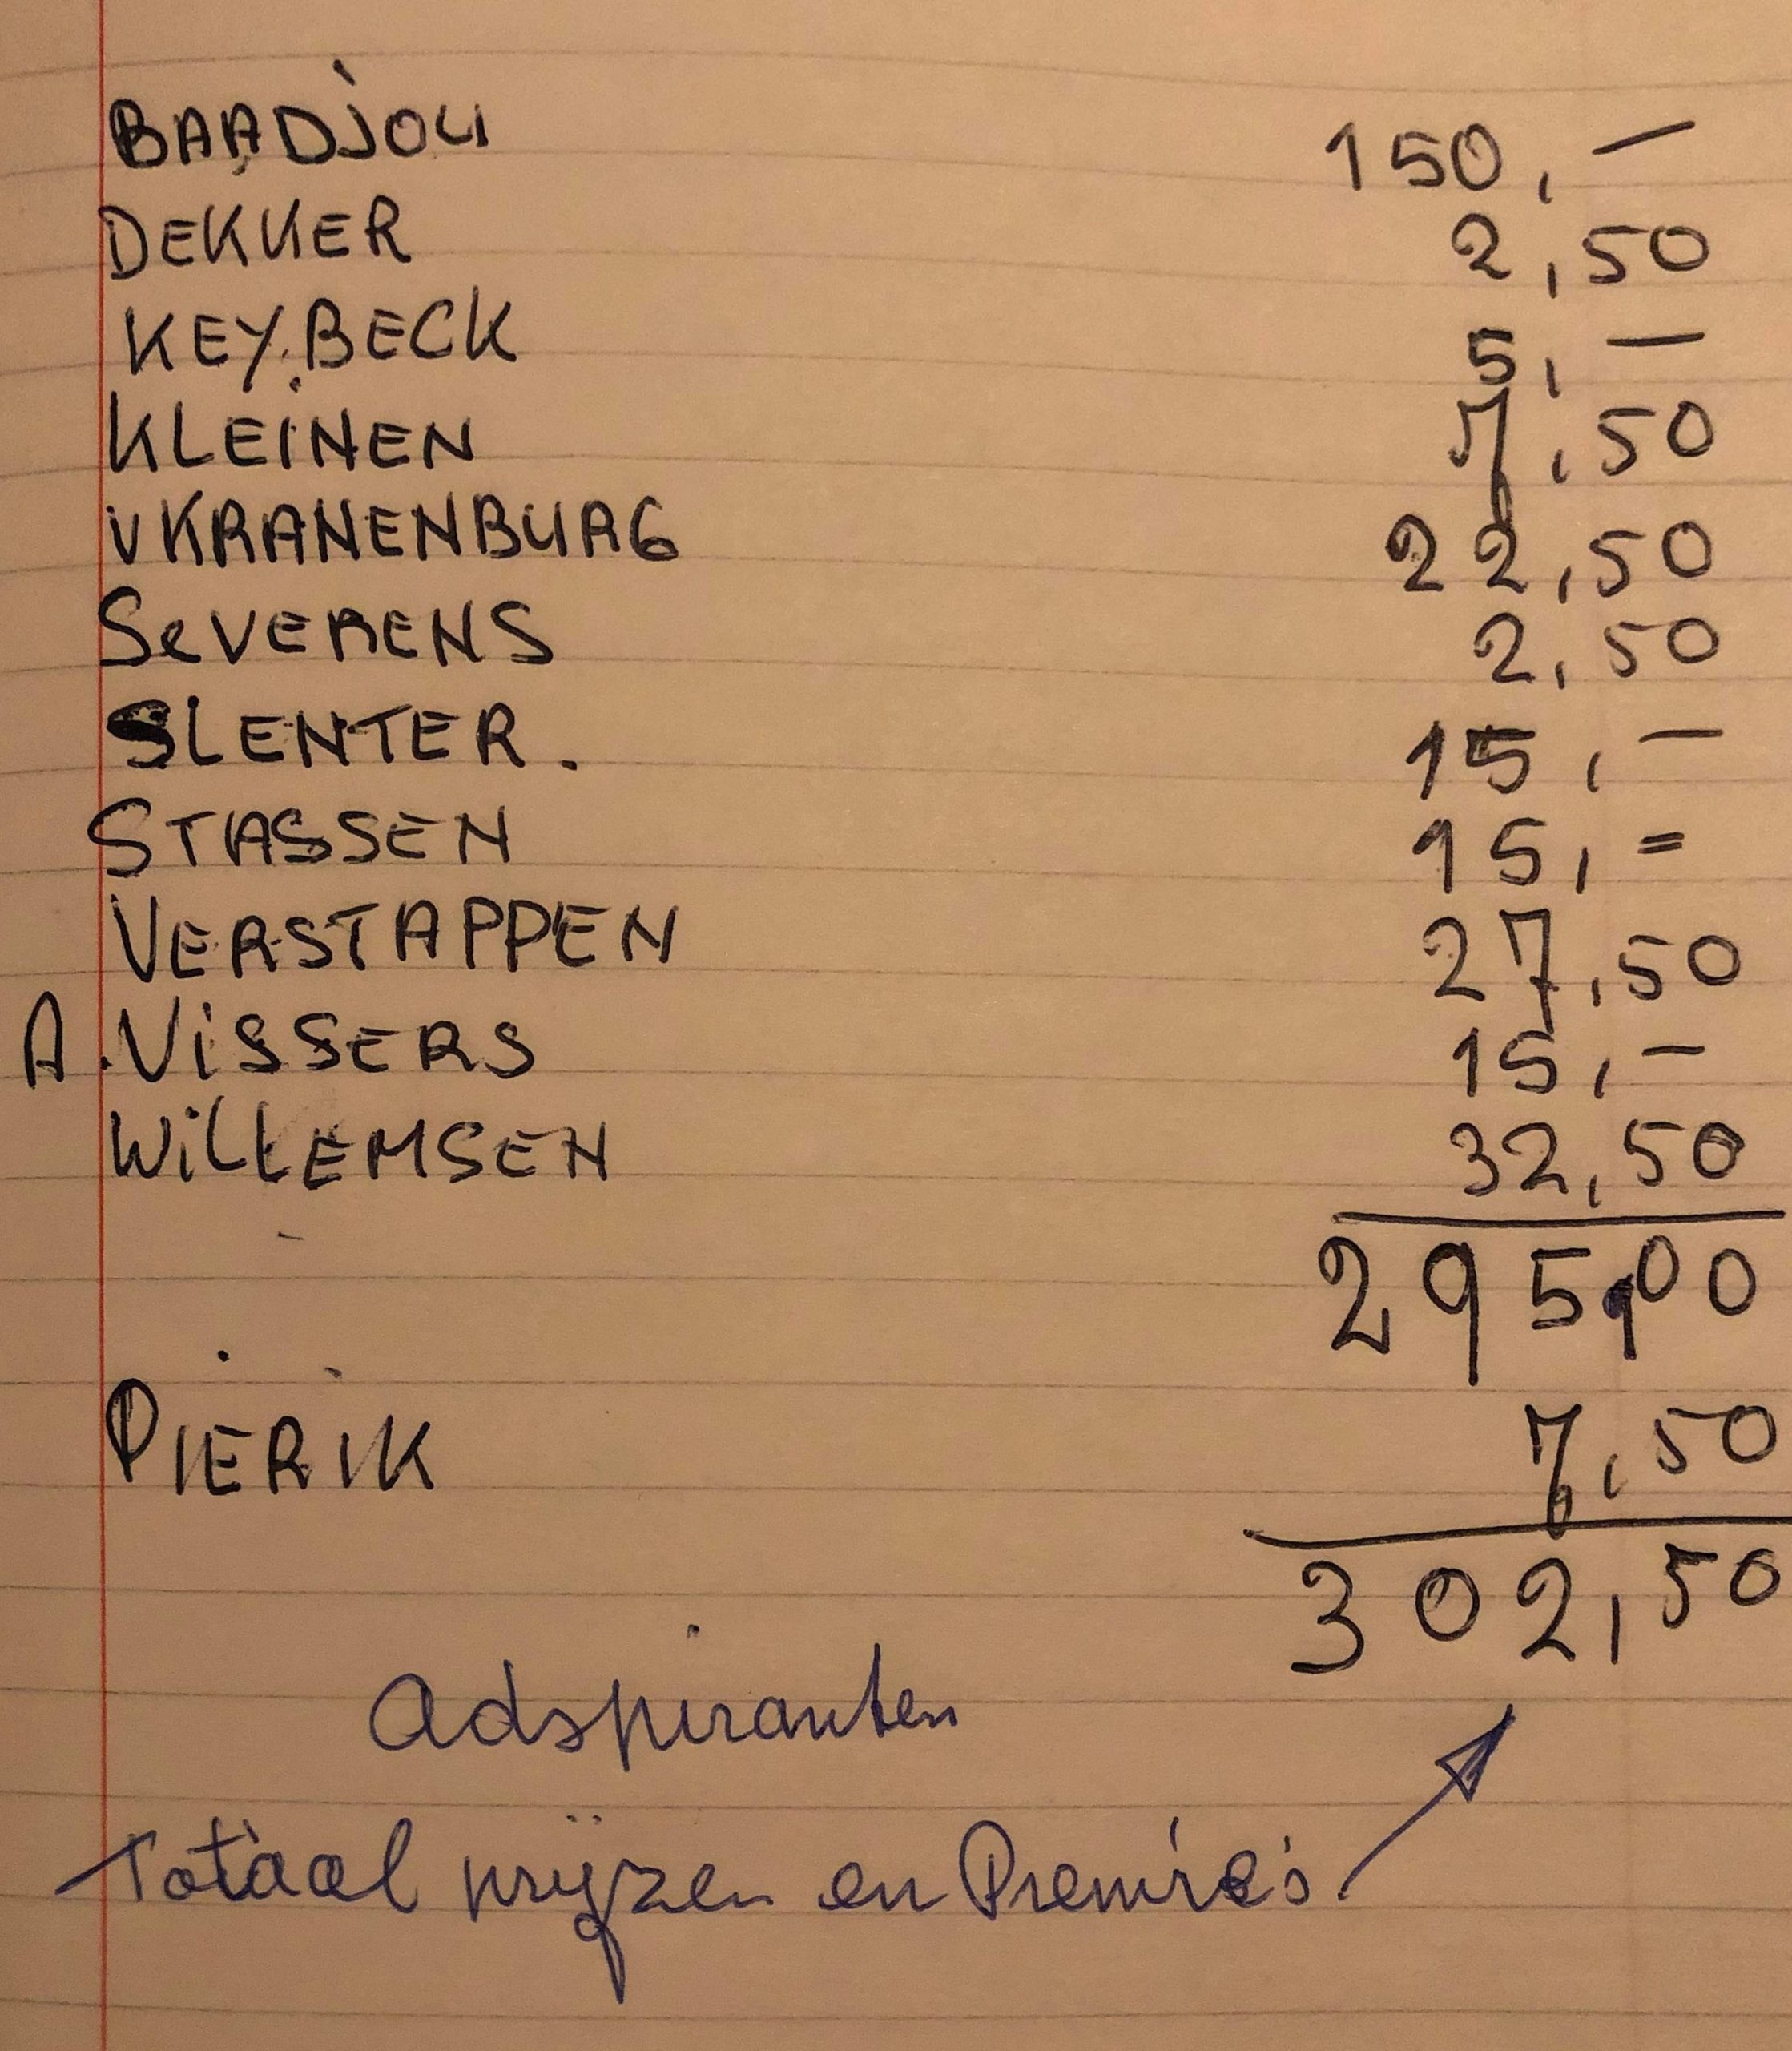 BAADJOU 150,—
DEKKER 2,50
KEYBECK 5,—
KLEiNEN 7,50
vKRANENBURG 22,50
SeVERENS 2,50
SLENTER. 15,—
STASSEN 15,=
VERSTAPPEN 27,50
A. ViSSERS 15,—
WiLLEMSEN 32,50
295,00
PIERIK 7,50
302,50
Adspiranten
Totaal prijzen en Premie's